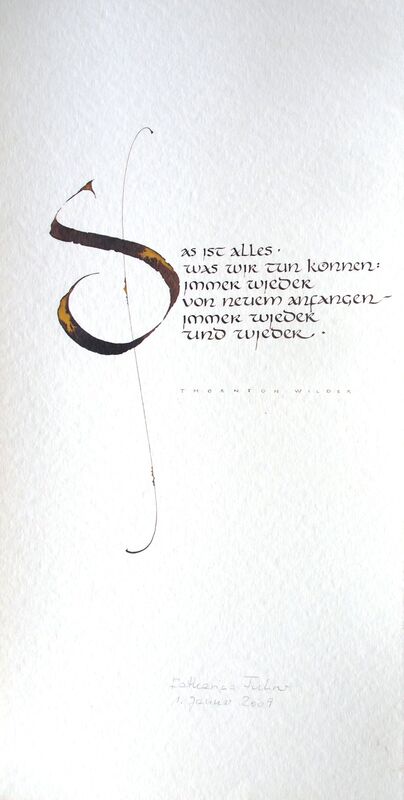 Das ist alles ·
was wir tun können:
immer wieder
von neuem anfangen –
immer wieder
und wieder ·
THORNTON WILDER
1. Januar 2009